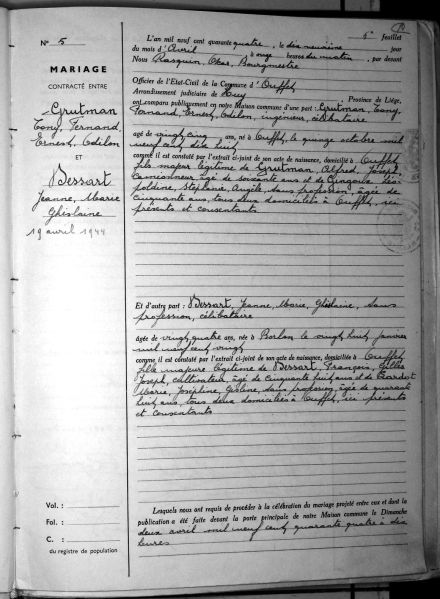 N° 5
MARIAGE
CONTRACTÉ ENTRE
Grutman
Tony, Fernand,
Ernest, Odilon
ET
Bessart
Jeanne, Marie
Ghislaine
19 avril 1944
Vol. :
Fol. :
C. :
du registre de population
5e feuillet
L'an mil neuf cent quarante quatre, le dix neuvième jour
du mois d'Avril à onze heures du matin, par devant
Nous Rasquin, Oscar, Bourgmestre
Officier de l'Etat-Civil de la Commune d'Ouffet
Arrondissement judiciaire de Huy Province de Liège,
ont comparu publiquement en notre Maison commune d'une part : Grutman, Tony,
Fernand, Ernest, Odilon, ingénieur, célibataire
âgé de vingt cinq ans, né à Ouffet, le quinze octobre mil
neuf cent dix huit
comme il est constaté par l'extrait ci-joint de son acte de naissance, domicilié à Ouffet,
fils majeur légitime de Grutman, Alfred, Joseph,
camionneur âgé de soixante ans et de Léo-
poldine, Stéphanie, Angèle, sans profession, âgée de
cinquante ans, tous deux domiciliés à Ouffet, ici
présents et consentants
Et d'autre part : Bessart, Jeanne, Marie, Ghislaine, sans
profession, célibataire
âgée de vingt quatre ans, née à Borlon le vingt huit janvier
mil neuf cent vingt
comme il est constaté par l'extrait ci-joint de son acte de naissance, domiciliée à Ouffet,
fille majeure légitime de Bessart, François, Gilles
Joseph, cultivateur, âgé de cinquante huit ans et de
Marie, Joséphine, Gislène, sans profession, âgée de quarante
huit ans, tous deux domiciliés à Ouffet, ici présents
et consentants
Lesquels nous ont requis de procéder à la célébration du mariage projeté entre eux et dont la
publication a été faite devant la porte principale de notre Maison commune le Dimanche
deux avril mil neuf cent quarante quatre à dix
heures